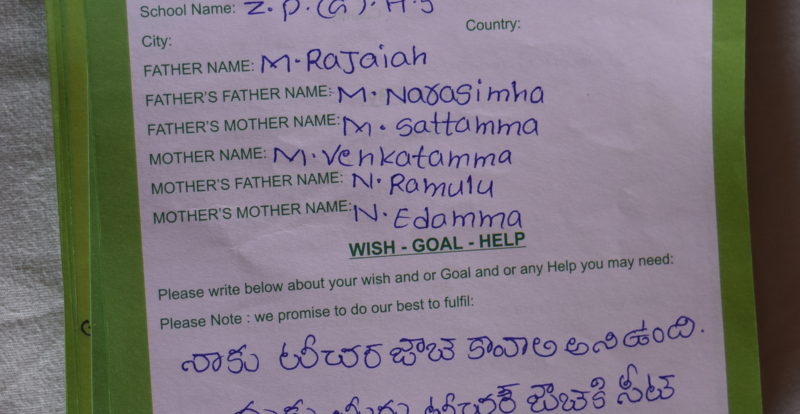 School Name: Z.P.(G).H.S
City: Country:
FATHER NAME: M.Rajaiah
FATHER'S FATHER NAME: M.Narasimha
FATHER'S MOTHER NAME: M.Sattamma
MOTHER NAME: M.Venkatamma
MOTHER'S FATHER NAME: N.Ramulu
MOTHER'S MOTHER NAME: N.Edamma
WISH - GOAL - HELP
Please write below about your wish and or Goal and or any Help you may need:
Please Note : we promise to do our best to fulfil:
నాకు టీచర జాబ కావాల అని ఉంది.
టీచర్ జాబకి సీట